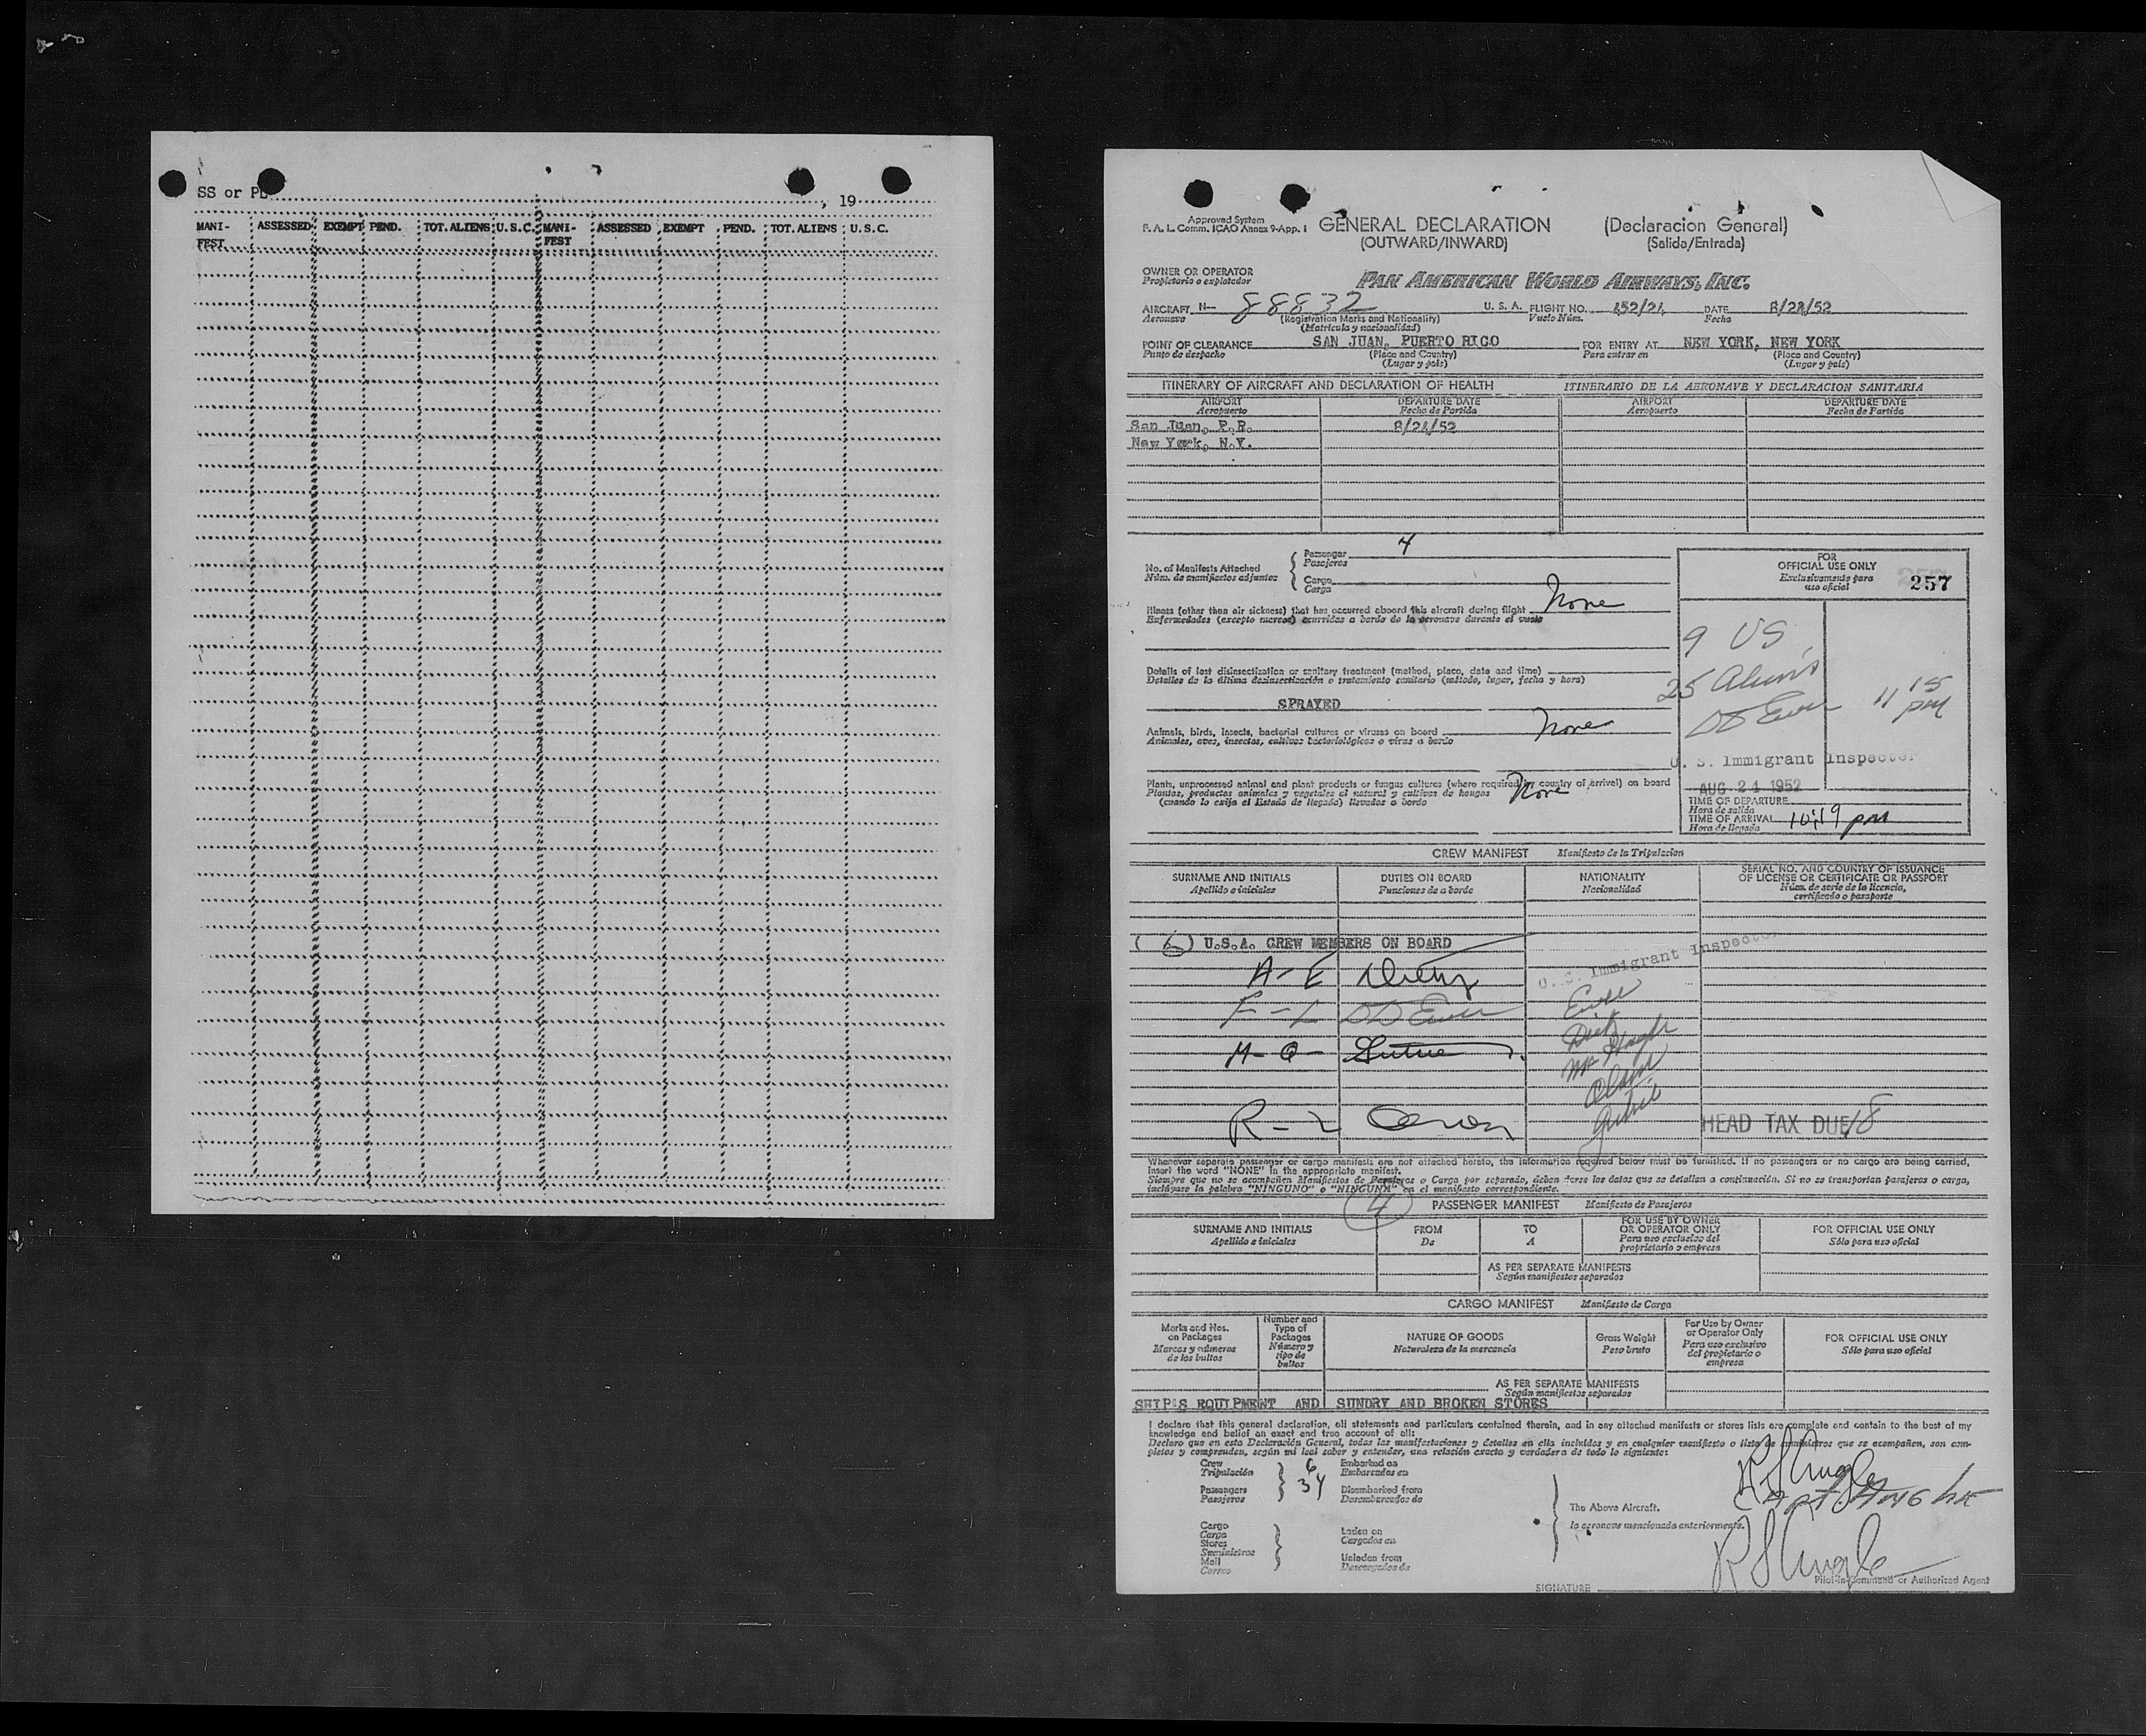 SS or PL , 19
MANI-FEST ASSESSED EXEMPT PEND. TOT. ALIENS U.S.C. MANI-FEST ASSESSED EXEMPT PEND. TOT. ALIENS U.S.C.
Approved System
F. A. L. Comm. ICAO Annex 9-App. 1
GENERAL DECLARATION (Declaracion General)
(OUTWARD/INWARD) (Salida/Entrada)
OWNER OR OPERATOR
Propietario o explotador
PAN AMERICAN WORLD AIRWAYS, INC.
AIRCRAFT N- 88832 U. S. A. FLIGHT NO. 452/24 DATE 8/24/52
Aeronave (Registration Marks and Nationality) Vuelo Núm. Fecha
(Matricula y nacionalidad)
POINT OF CLEARANCE SAN JUAN, PUERTO RICO FOR ENTRY AT NEW YORK, NEW YORK
Punto de despacho (Place and Country) Para entrar en (Place and Country)
(Lugar y país) (Lugar y país)
ITINERARY OF AIRCRAFT AND DECLARATION OF HEALTH ITINERARIO DE LA AERONAVE Y DECLARACION SANITARIA
AIRPORT DEPARTURE DATE AIRPORT DEPARTURE DATE
Aeropuerto Fecha de Partida Aeropuerto Fecha de Partida
San Juan, P.R. 8/24/52
New York, N.Y.
No. of Manifests Attached
Núm. de manifiestos adjuntos
Passenger 4
Pasajeros
Cargo
Carga
FOR
OFFICIAL USE ONLY
Exclusivamente para
uso oficial
257
Illness (other than air sickness) that has occurred aboard this aircraft during flight None
Enfermedades (excepto mareos) ocurridas a bordo de la aeronave durante el vuelo
9 US
25 Aliens
11 15 pm
Details of last disinsectization or sanitary treatment (method, place, date and time)
Detalles de la última desinsectización o tratamiento sanitario (método, lugar, fecha y hora)
SPRAYED
Animals, birds, insects, bacterial cultures or viruses on board None
Animales, aves, insectos, cultivos bacteriológicos o virus a bordo
U. S. Immigrant Inspector
Plants, unprocessed animal and plant products or fungus cultures (where required by country of arrival) on board None
Plantas, productos animales y vegetales al natural y cultivos de hongos
(cuando lo exija el Estado de llegada) llevados a bordo
AUG 24 1952
TIME OF DEPARTURE
Hora de salida
TIME OF ARRIVAL 10:19 pm
Hora de llegada
CREW MANIFEST Manifiesto de la Tripulacion
SURNAME AND INITIALS DUTIES ON BOARD NATIONALITY SERIAL NO. AND COUNTRY OF ISSUANCE
OF LICENSE OR CERTIFICATE OR PASSPORT
Apellido e iniciales Funciones de a bordo Nacionalidad Núm. de serie de la licencia,
certificado o pasaporte
( 6 ) U.S.A. CREW MEMBERS ON BOARD
U. S. Immigrant Inspector
A-E
F-L
M-Q
R-Z
HEAD TAX DUE 18
Whenever separate passenger or cargo manifests are not attached hereto, the information required below must be furnished. If no passengers or no cargo are being carried,
insert the word "NONE" in the appropriate manifest.
Siempre que no se acompañen Manifiestos de Pasajeros o Carga por separado, deben darse los datos que se detallan a continuación. Si no se transportan pasajeros o carga,
inclúyase la palabra "NINGUNO" o "NINGUNA" en el manifiesto correspondiente.
4
PASSENGER MANIFEST Manifiesto de Pasajeros
SURNAME AND INITIALS FROM TO FOR USE BY OWNER
OR OPERATOR ONLY FOR OFFICIAL USE ONLY
Apellido e iniciales De A Para uso exclusivo del
propietario o empresa Sólo para uso oficial
AS PER SEPARATE MANIFESTS
Según manifiestos separados
CARGO MANIFEST Manifiesto de Carga
Marks and Nos.
on Packages
Marcas y números
de los bultos
Number and
Type of
Packages
Número y
tipo de
bultos
NATURE OF GOODS
Naturaleza de la mercancía
Gross Weight
Peso bruto
For Use by Owner
or Operator Only
Para uso exclusivo
del propietario o
empresa
FOR OFFICIAL USE ONLY
Sólo para uso oficial
AS PER SEPARATE MANIFESTS
Según manifiestos separados
SHIP'S EQUIPMENT AND SUNDRY AND BROKEN STORES
I declare that this general declaration, all statements and particulars contained therein, and in any attached manifests or stores lists are complete and contain to the best of my
knowledge and belief an exact and true account of all:
Declaro que en esta Declaración General, todas las manifestaciones y detalles en ella incluidos y en cualquier manifiesto o lista de suministros que se acompañen, son com-
pletos y comprenden, según mi leal saber y entender, una relación exacta y verdadera de todo lo siguiente:
Crew 6 Embarked on
Tripulación Embarcados en
Passengers 34 Disembarked from
Pasajeros Desembarcados de
The Above Aircraft.
la aeronave mencionada anteriormente.
Cargo
Carga
Stores
Suministros
Mail
Correo
Laden on
Cargados en
Unladen from
Descargados de
SIGNATURE
Pilot-in-Command or Authorized Agent